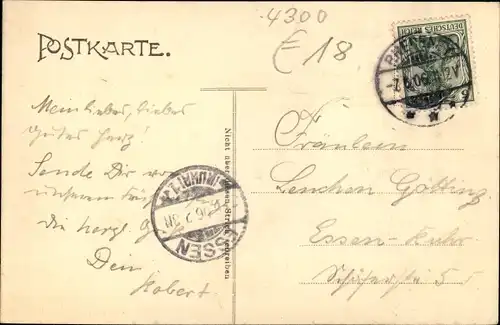 4300
E 18
POSTKARTE.
DEUTSCHES REICH
Mein liebes, liebes
gutes Herz!
Sende Dir von
unserem
die herzl.
Dein
Robert
Nicht über diesen Strich schreiben
ESSEN
(RUHR) 1
Fräulein
Lenchen Götting
Essen-Ruhr
5